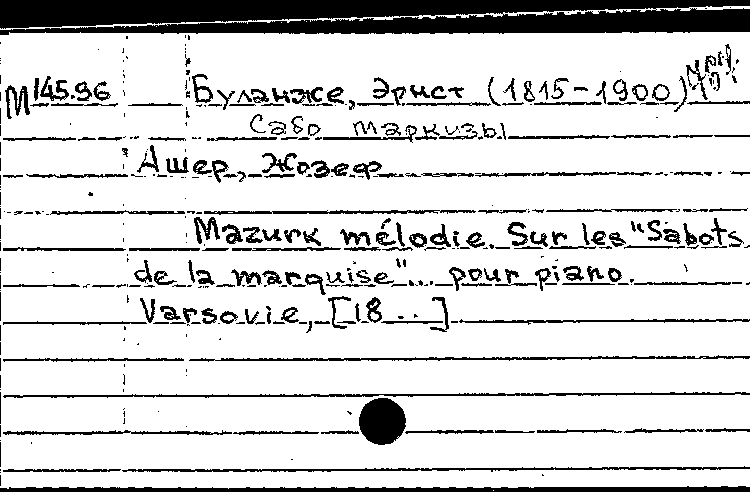 М 145.96 Буланже, Эрнст (1815-1900)
Сабо маркизы
Ашер, Жозеф
Mazurk mélodie. Sur les "Sabots
de la marquise"... pour piano.
Varsovie, [18 . .]